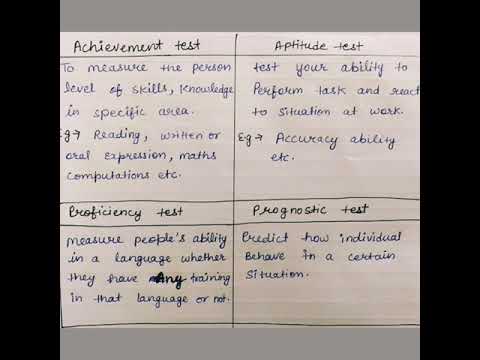 Achievement test
To measure the person
level of skills, knowledge
in specific area.
Eg → Reading, written or
oral expression, maths
computations etc.
Aptitude test
test your ability to
Perform task and react
to situation at work.
Eg → Accuracy ability
etc.
Proficiency test
Measure people's ability
in a language whether
they have Any training
in that language or not.
Prognostic test
Predict how individual
Behave in a certain
Situation.